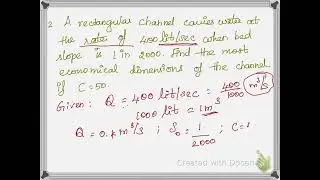 2. A rectangular channel carries water at
the rate of 400 lit/sec when bed
slope is 1 in 2000. Find the most
economical dimensions of the channel
if C=50.
Given: Q = 400 lit/sec = 400/1000 m³/s
1000 lit = 1m³
Q = 0.4 m³/s ; S₀ = 1/2000 ; C=
Created with Doceri